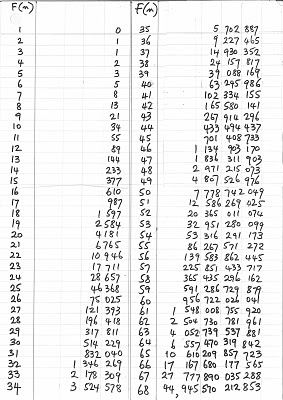 F(n) F(n)
1 0 35 5 702 887
2 1 36 9 227 465
3 1 37 14 930 352
4 2 38 24 157 817
5 3 39 39 088 169
6 5 40 63 245 986
7 8 41 102 334 155
8 13 42 165 580 141
9 21 43 267 914 296
10 34 44 433 494 437
11 55 45 701 408 733
12 89 46 1 134 903 170
13 144 47 1 836 311 903
14 233 48 2 971 215 073
15 377 49 4 807 526 976
16 610 50 7 778 742 049
17 987 51 12 586 269 025
18 1 597 52 20 365 011 074
19 2 584 53 32 951 280 099
20 4181 54 53 316 291 173
21 6765 55 86 267 571 272
22 10 946 56 139 583 862 445
23 17 711 57 225 851 433 717
24 28 657 58 365 435 296 162
25 46 368 59 591 286 729 879
26 75 025 60 956 722 026 041
27 121 393 61 1 548 008 755 920
28 196 418 62 2 504 730 781 961
29 317 811 63 4 052 739 537 881
30 514 229 64 6 557 470 319 842
31 832 040 65 10 610 209 857 723
32 1 346 269 66 17 167 680 177 565
33 2 178 309 67 27 777 890 035 288
34 3 524 578 68 44, 945 570 212 853